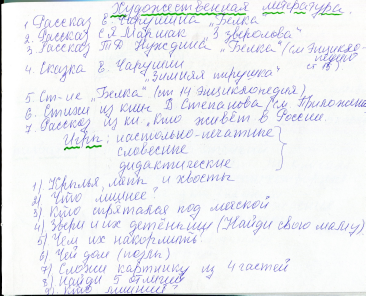 Художественная литература.
1. Рассказ Е. Чарушина „Белка"
2. Рассказ С.Я Маршак „3 зверолова"
3 Рассказ Т.Д Нуждина „Белка" (см Энцикло-
педию
ст 18)
4. Сказка Е. Чарушин
„Зимняя
5. Ст-ие „Белка" (ст 14 Энциклопедия)
6. Стихи из книг В Степанова (см. Приложение
7. Рассказ из кн „Кто живёт в России.
Игры: настольно-печатные
словесные
дидактические
1) Крылья, лапы и хвосты
2) Что лишнее?
3) Кто спрятался под маской
4) Звери и их детёныши (Найди свою маму)
5) Чем их накормить
6) Чей дом (пазлы)
7) Сложи картинку из 4 частей
8) Найди 5 отличий
9) Кто лишний?